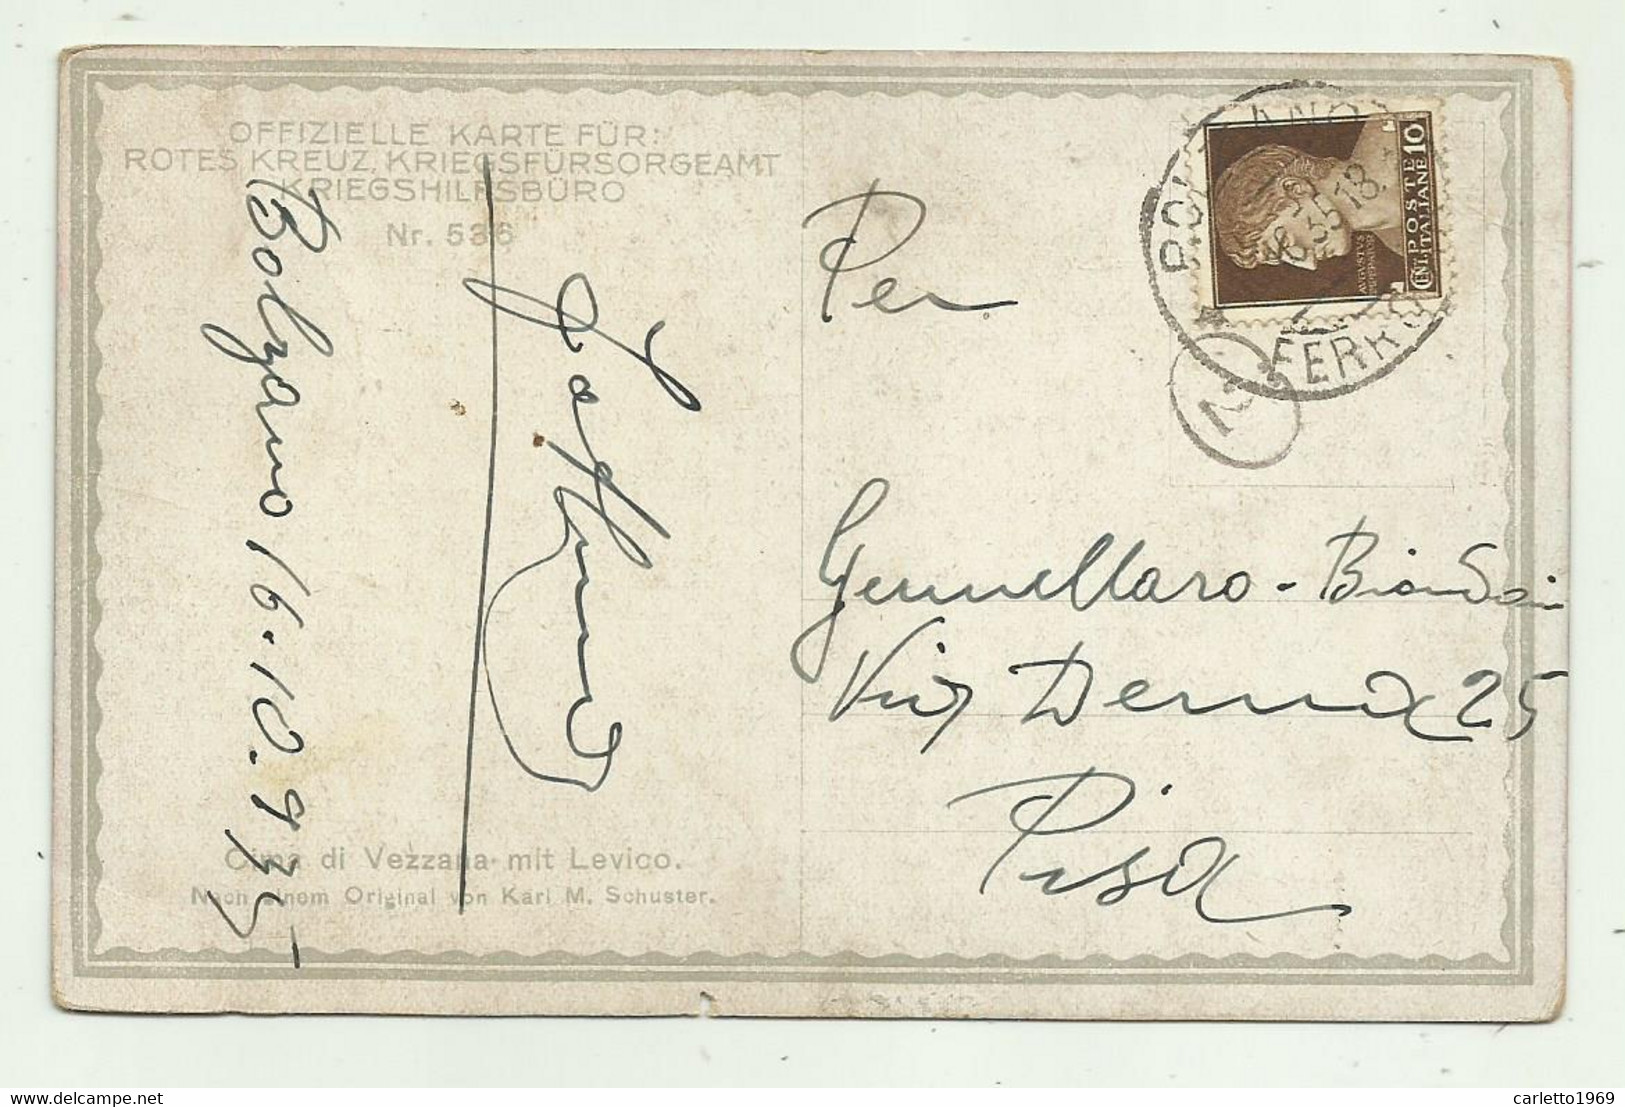 OFFIZIELLE KARTE FÜR:
ROTES KREUZ, KRIEGSFÜRSORGEAMT
KRIEGSHILFSBÜRO
Nr. 536
Bolzano 16.10.935
Cima di Vezzana mit Levico.
Nach einem Original von Karl M. Schuster.
POSTE ITALIANE
CENT. 10
BOLZANO
FERR
Per
Gemmellaro - Biondani
Via Derna 25
Pisa
www.delcampe.net
carletto1969